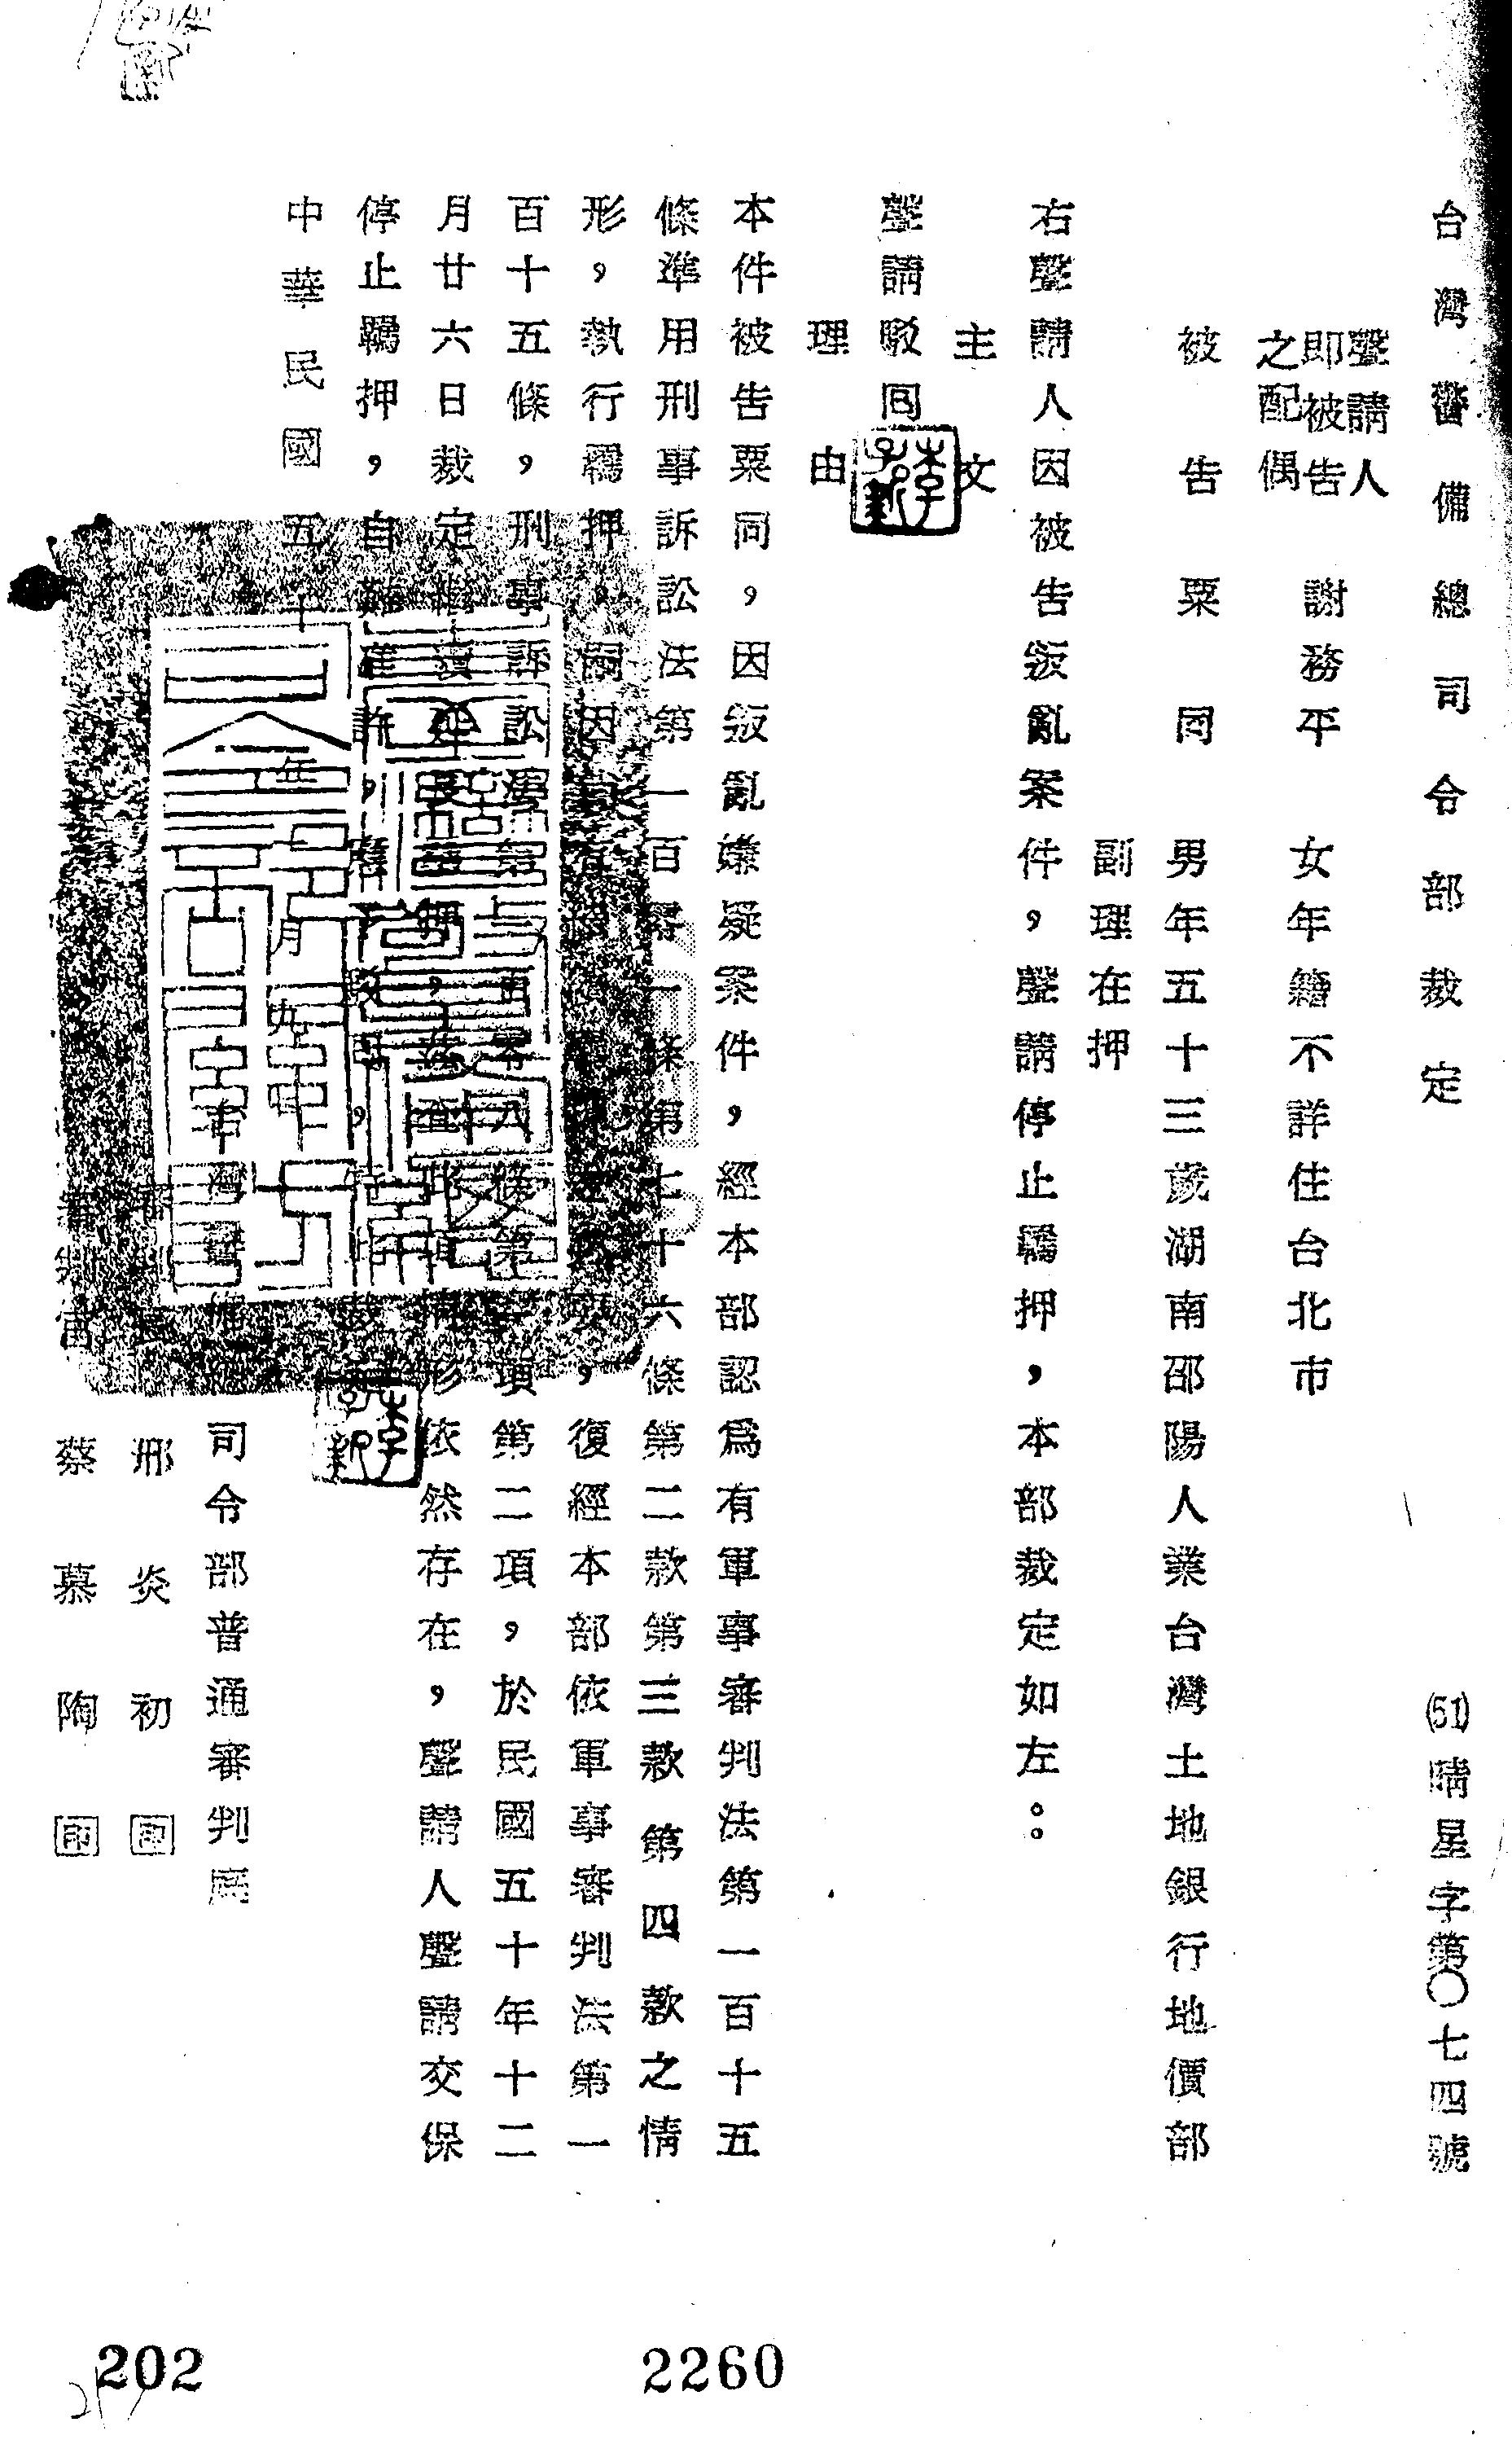 台灣警備總司令部裁定
(51)晴星字第〇七四號
聲請人
即被告
之配偶
謝務平
女年籍不詳住台北市
被告粟同
男年五十三歲湖南邵陽人業台灣土地銀行地價部
副理在押
右聲請人因被告叛亂案件，聲請停止羈押，本部裁定如左：
主文
聲請駁回
理由
本件被告粟同，因叛亂嫌疑案件，經本部認爲有軍事審判法第一百十五
條準用刑事訴訟法第一百零一條第七十六條第二款第三款第四款之情
形，執行羈押，嗣因，復經本部依軍事審判法第一
百十五條，刑事訴訟法第百零八條第一項第二項，於民國五十年十二
月廿六日裁定繼續延長羈押，茲查此項情形依然存在，聲請人聲請交保
停止羈押，自難准許，應予駁回，特此裁定
中華民國五十年月九
台灣警備總司令部普通審判庭
審判長邢炎初印
審判官蔡慕陶印
202
2260